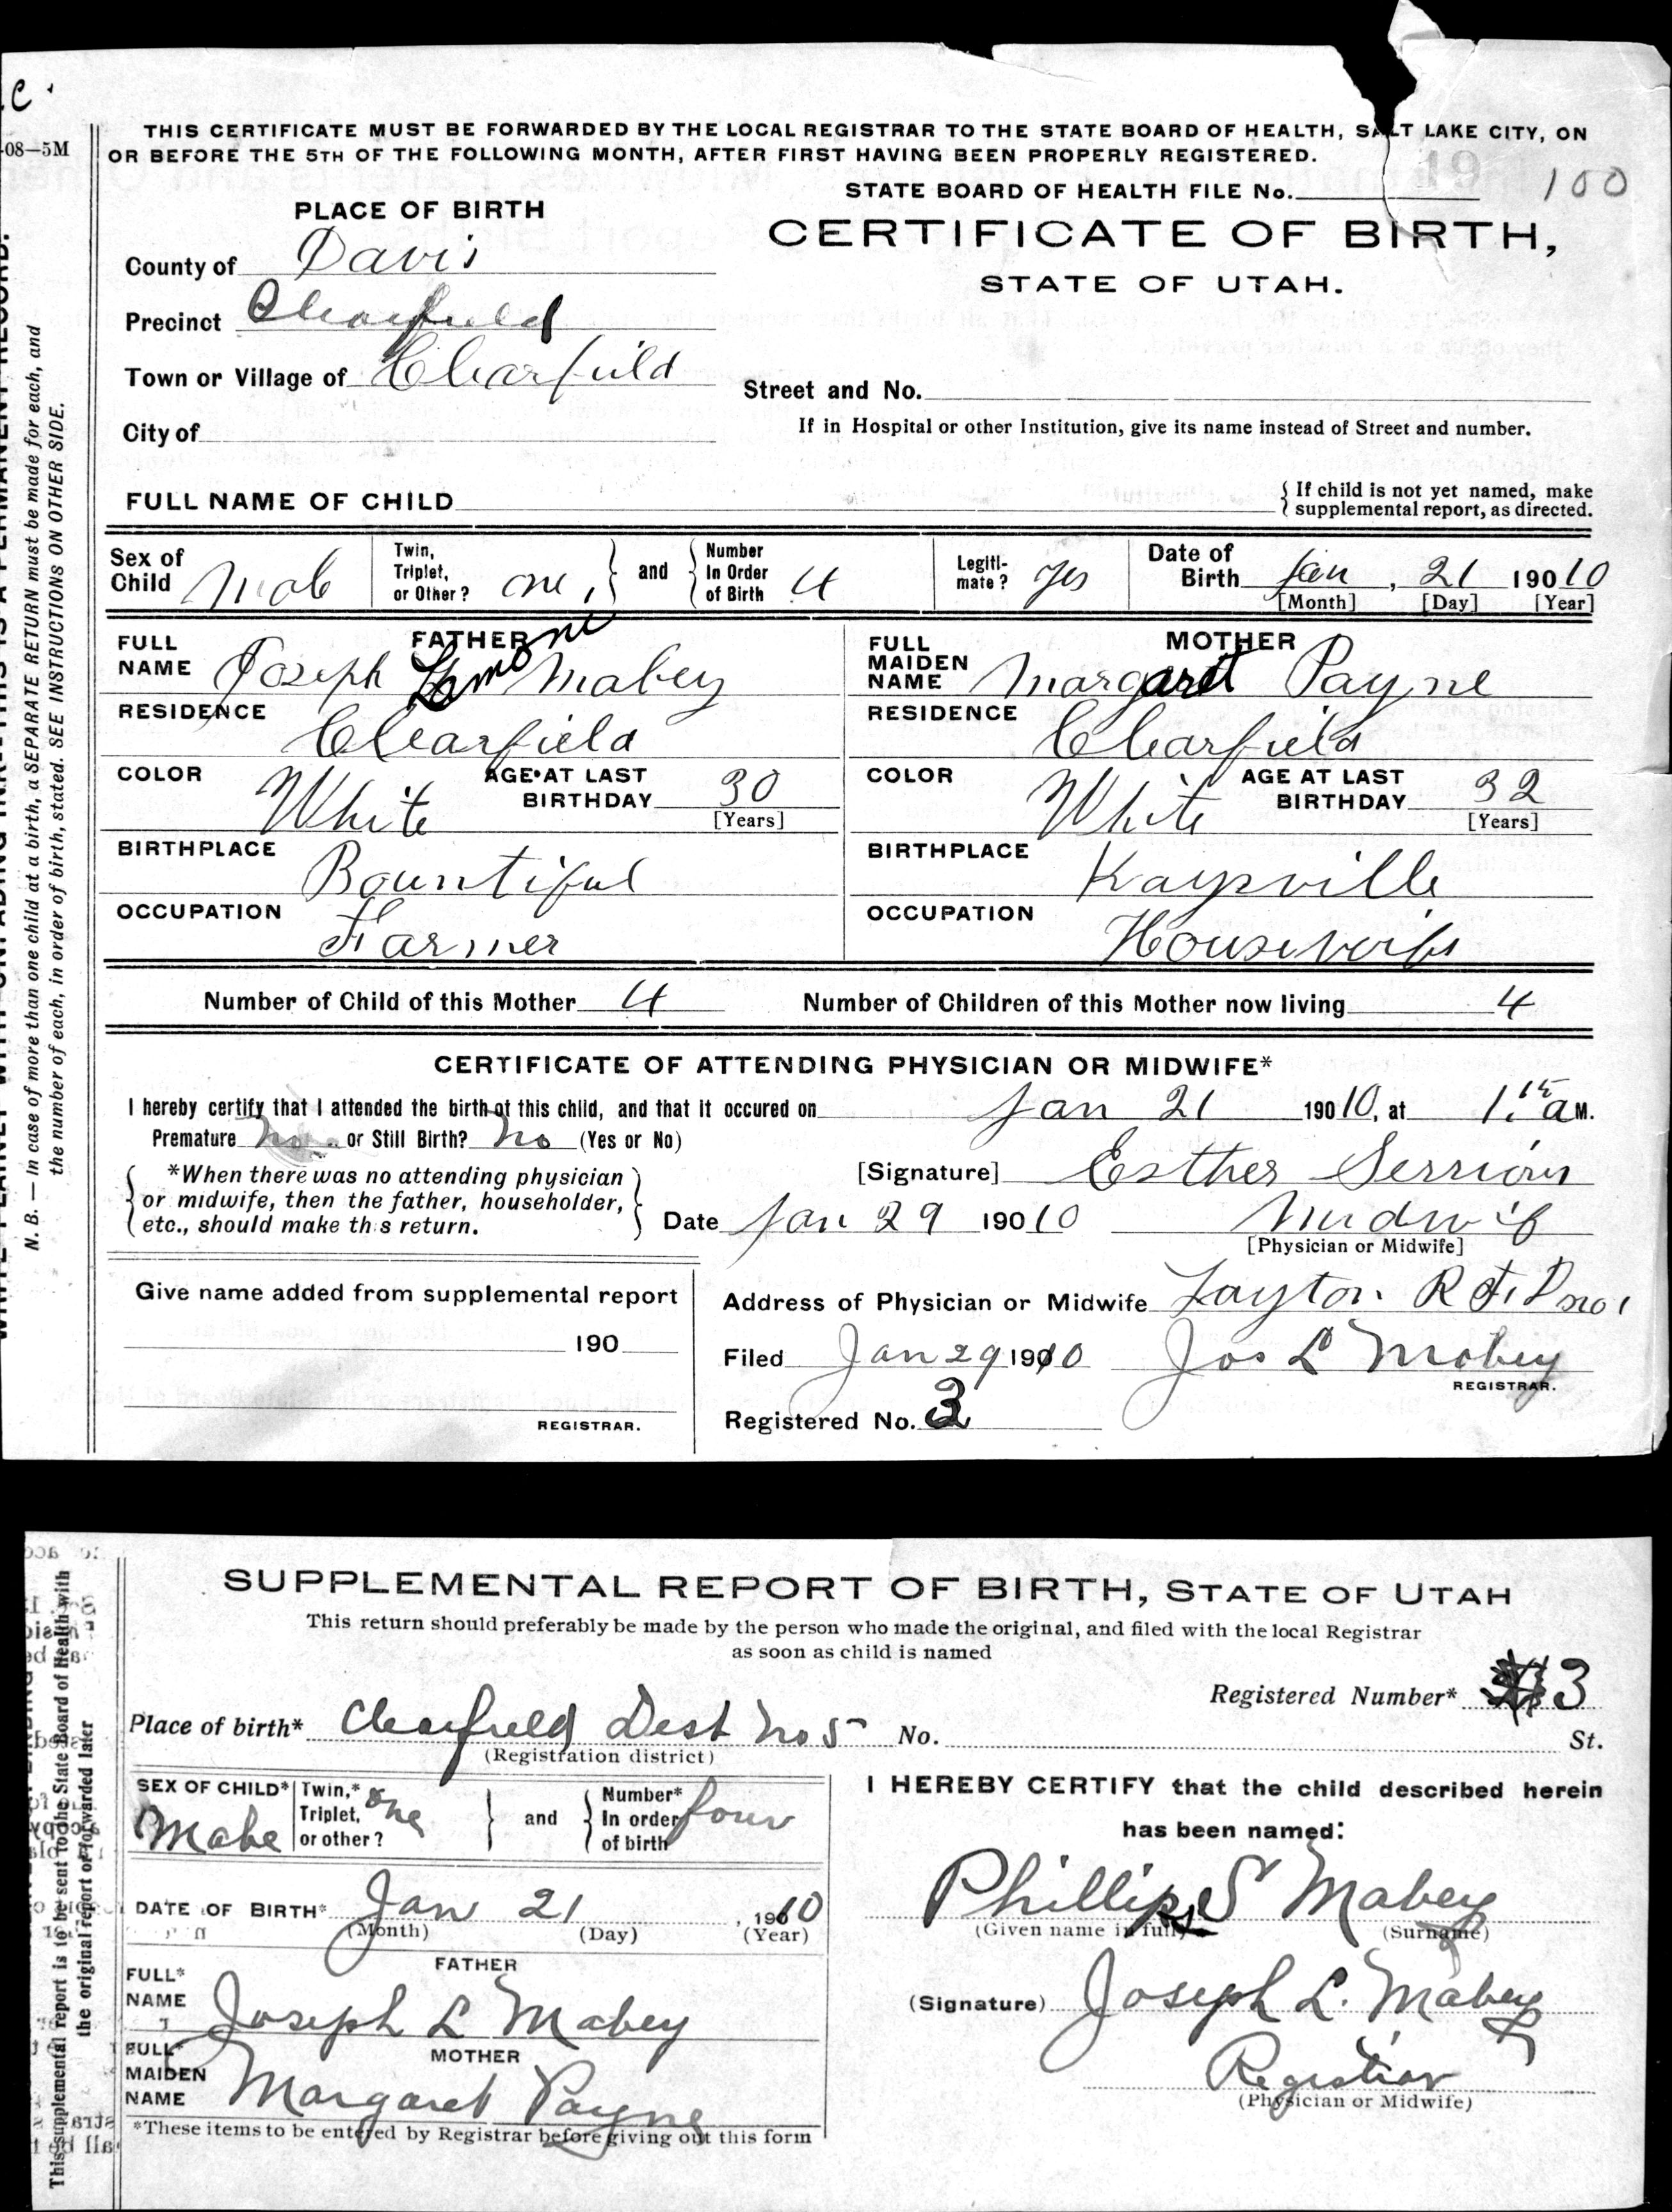 c.
-08—5M
THIS CERTIFICATE MUST BE FORWARDED BY THE LOCAL REGISTRAR TO THE STATE BOARD OF HEALTH, SALT LAKE CITY, ON
OR BEFORE THE 5TH OF THE FOLLOWING MONTH, AFTER FIRST HAVING BEEN PROPERLY REGISTERED.
STATE BOARD OF HEALTH FILE No. 19 100
PLACE OF BIRTH
CERTIFICATE OF BIRTH,
STATE OF UTAH.
County of Davis
Precinct Clearfield
Town or Village of Clearfield
Street and No.
City of
If in Hospital or other Institution, give its name instead of Street and number.
FULL NAME OF CHILD
{ If child is not yet named, make
supplemental report, as directed.
Sex of Child Male
Twin, Triplet, or Other? one, } and { Number In Order of Birth 4
Legiti-mate? Yes
Date of Birth Jan, 21 19010
[Month] [Day] [Year]
FATHER
FULL NAME Joseph Lamone Mabey
MOTHER
FULL MAIDEN NAME Margaret Payne
RESIDENCE Clearfield
RESIDENCE Clearfield
COLOR White AGE AT LAST BIRTHDAY 30 [Years]
COLOR White AGE AT LAST BIRTHDAY 32 [Years]
BIRTHPLACE Bountiful
BIRTHPLACE Kaysville
OCCUPATION Farmer
OCCUPATION Housewife
Number of Child of this Mother 4 Number of Children of this Mother now living 4
CERTIFICATE OF ATTENDING PHYSICIAN OR MIDWIFE*
I hereby certify that I attended the birth of this child, and that it occured on Jan 21 19010, at 1.15 a M.
Premature No or Still Birth? No (Yes or No)
{ *When there was no attending physician
or midwife, then the father, householder,
etc., should make this return. }
[Signature] Esther
Date Jan 29 19010 Midwif
[Physician or Midwife]
Give name added from supplemental report
190
REGISTRAR.
Address of Physician or Midwife Layton R F D no 1
Filed Jan 29 1910 Jos L Mabey
REGISTRAR.
Registered No. 3
N. B. — In case of more than one child at a birth, a SEPARATE RETURN must be made for each, and
the number of each, in order of birth, stated. SEE INSTRUCTIONS ON OTHER SIDE.
SUPPLEMENTAL REPORT OF BIRTH, STATE OF UTAH
This return should preferably be made by the person who made the original, and filed with the local Registrar
as soon as child is named
Registered Number* 3
Place of birth* Clearfield Dist No 5 No. St.
(Registration district)
SEX OF CHILD* Male
Twin,* Triplet, or other? One } and { Number* In order of birth four
I HEREBY CERTIFY that the child described herein
has been named:
DATE OF BIRTH* Jan 21, 19010
(Month) (Day) (Year)
Phillip S Mabey
(Given name in full) (Surname)
FATHER
FULL* NAME Joseph L Mabey
(Signature) Joseph L. Mabey
MOTHER
FULL* MAIDEN NAME Margaret Payne
Registrar
(Physician or Midwife)
*These items to be entered by Registrar before giving out this form
This supplemental report is to be sent to the State Board of Health with
the original report or forwarded later